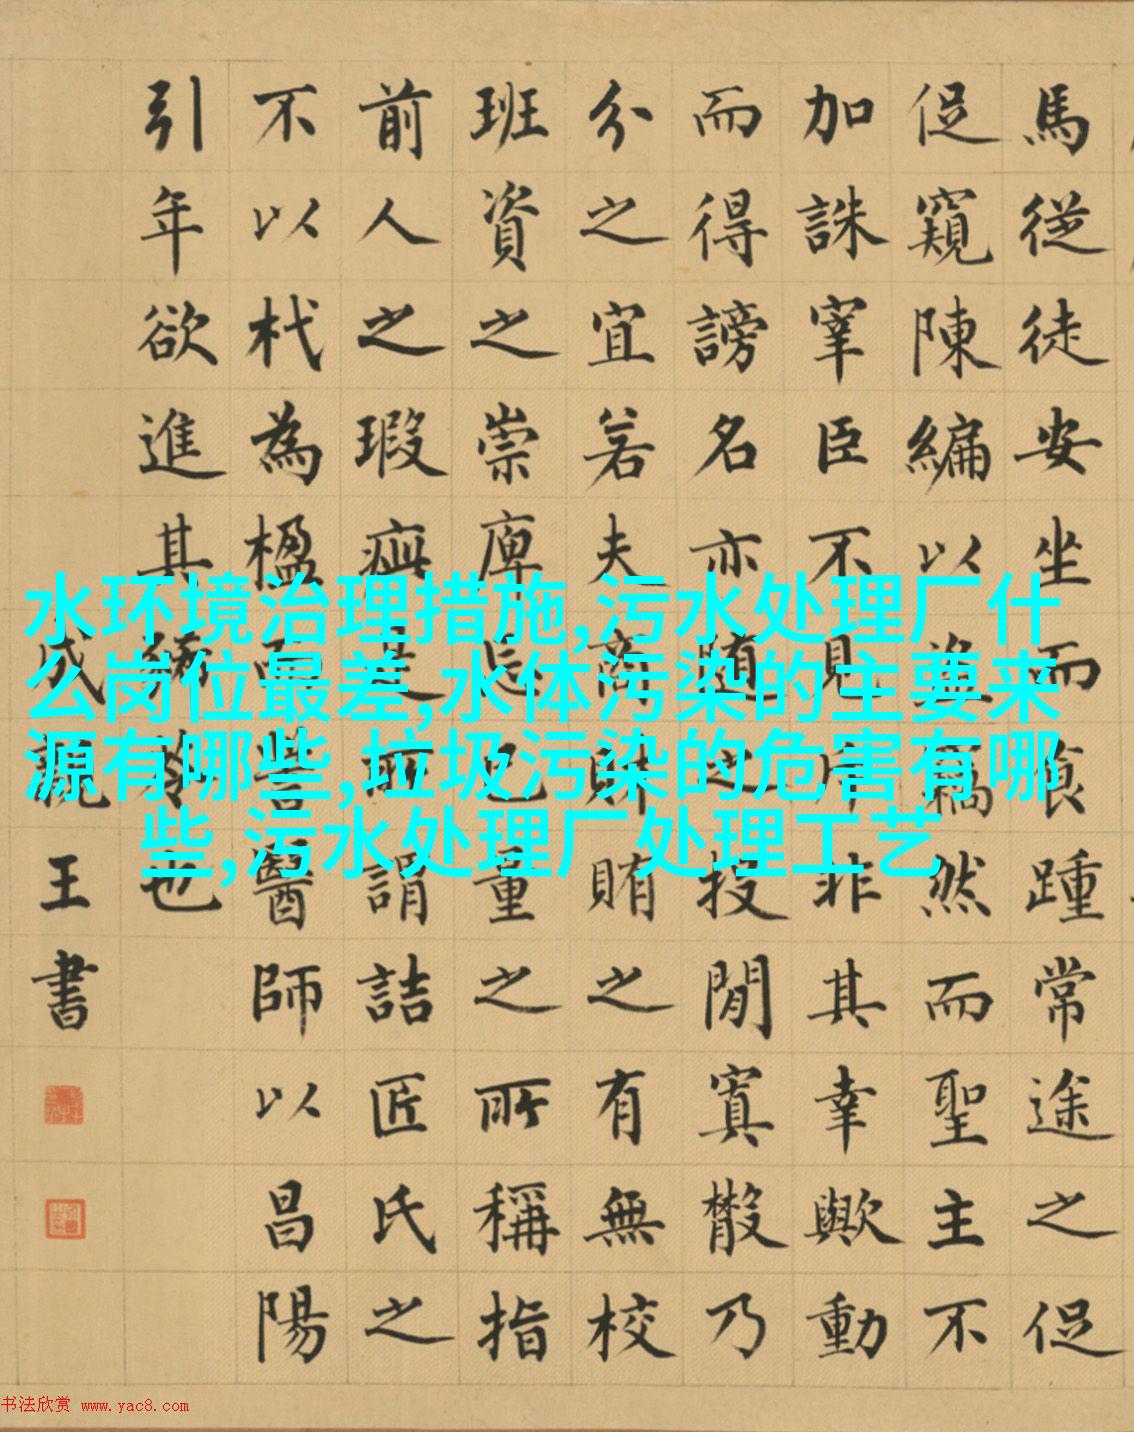 馬從徒安坐而食踵常途之促
促窺陳編以盜竊然而聖主不
加誅宰臣不見斥非其幸歟動
而得謗名亦随之投閒寘散乃
分之宜若夫商財賄之有無校
班資之崇庳忘己量之所稱指
前人之瑕疵是所謂詰匠氏之
不以杙為楹而訾醫師以昌陽
引年欲進其豨苓也
成親王書
水环境治理措施,污水处理厂什
么岗位最差,水体污染的主要来
源有哪些,垃圾污染的危害有哪
些,污水处理厂处理工艺
书法欣赏 www.yac8.com